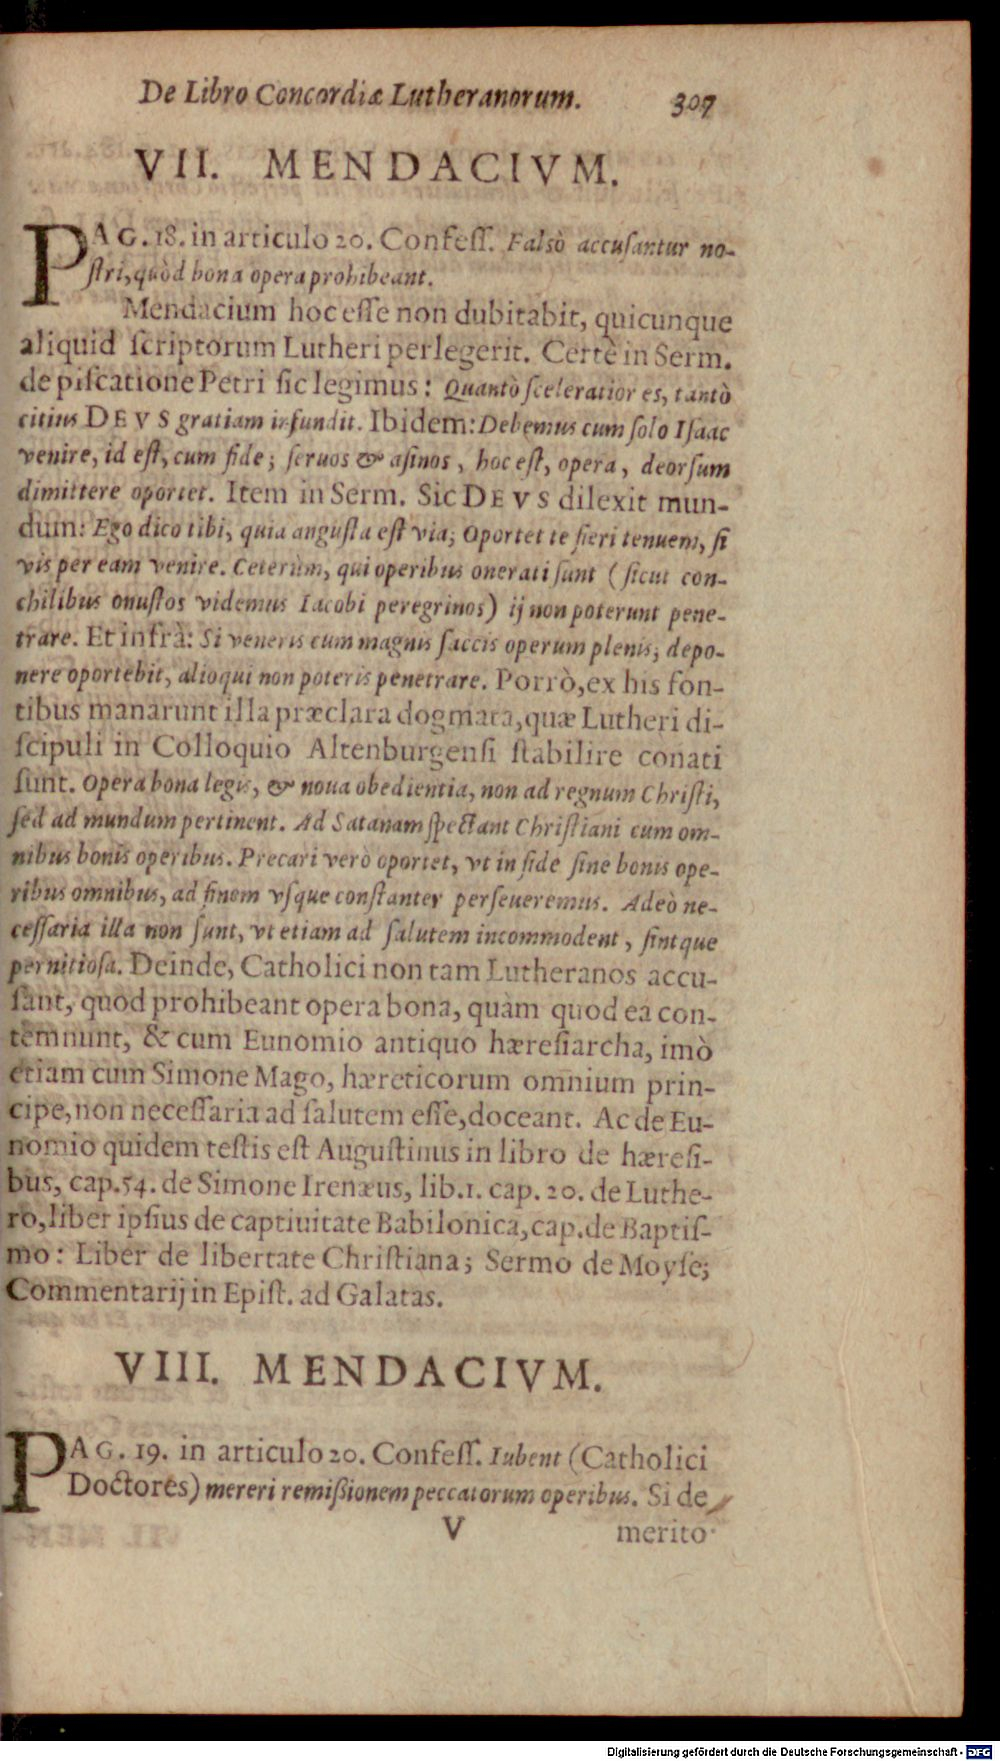 De Libro Concordiæ Lutheranorum. 307
VII. MENDACIVM.
PAG. 18. in articulo 20. Confeſſ. Falsò accuſantur no-
ſtri, quòd bona opera prohibeant.
Mendacium hoc eſſe non dubitabit, quicunque
aliquid ſcriptorum Lutheri perlegerit. Certè in Serm.
de piſcatione Petri ſic legimus: Quantò ſceleratior es, tantò
citius DEVS gratiam infundit. Ibidem: Debemus cum ſolo Iſaac
venire, id eſt, cum fide; ſeruos & aſinos, hoc eſt, opera, deorſum
dimittere oportet. Item in Serm. Sic DEVS dilexit mun-
dum: Ego dico tibi, quia anguſta eſt via; Oportet te fieri tenuem, ſi
vis per eam venire. Ceterùm, qui operibus onerati ſunt (ſicut con-
chilibus onuſtos videmus Iacobi peregrinos) ij non poterunt pene-
trare. Et infrà: Si veneris cum magnis ſaccis operum plenis; depo-
nere oportebit, alioqui non poteris penetrare. Porrò, ex his fon-
tibus manarunt illa præclara dogmata, quæ Lutheri di-
ſcipuli in Colloquio Altenburgenſi ſtabilire conati
ſunt. Opera bona legis, & noua obedientia, non ad regnum Chriſti,
ſed ad mundum pertinent. Ad Satanam ſpectant Chriſtiani cum om-
nibus bonis operibus. Precari verò oportet, vt in fide ſine bonis ope-
ribus omnibus, ad finem vſque conſtanter perſeueremus. Adeò ne-
ceſſaria illa non ſunt, vt etiam ad ſalutem incommodent, ſintque
pernitioſa. Deinde, Catholici non tam Lutheranos accu-
ſant, quod prohibeant opera bona, quàm quod ea con-
temnunt, & cum Eunomio antiquo hæreſiarcha, imò
etiam cum Simone Mago, hæreticorum omnium prin-
cipe, non neceſſaria ad ſalutem eſſe, doceant. Ac de Eu-
nomio quidem teſtis eſt Auguſtinus in libro de hæreſi-
bus, cap. 54. de Simone Irenæus, lib. 1. cap. 20. de Luthe-
ro, liber ipſius de captiuitate Babilonica, cap. de Baptiſ-
mo: Liber de libertate Chriſtiana; Sermo de Moyſe;
Commentarij in Epiſt. ad Galatas.
VIII. MENDACIVM.
PAG. 19. in articulo 20. Confeſſ. Iubent (Catholici
Doctores) mereri remißionem peccatorum operibus. Si de
V merito
Digitalisierung gefördert durch die Deutsche Forschungsgemeinschaft - DFG